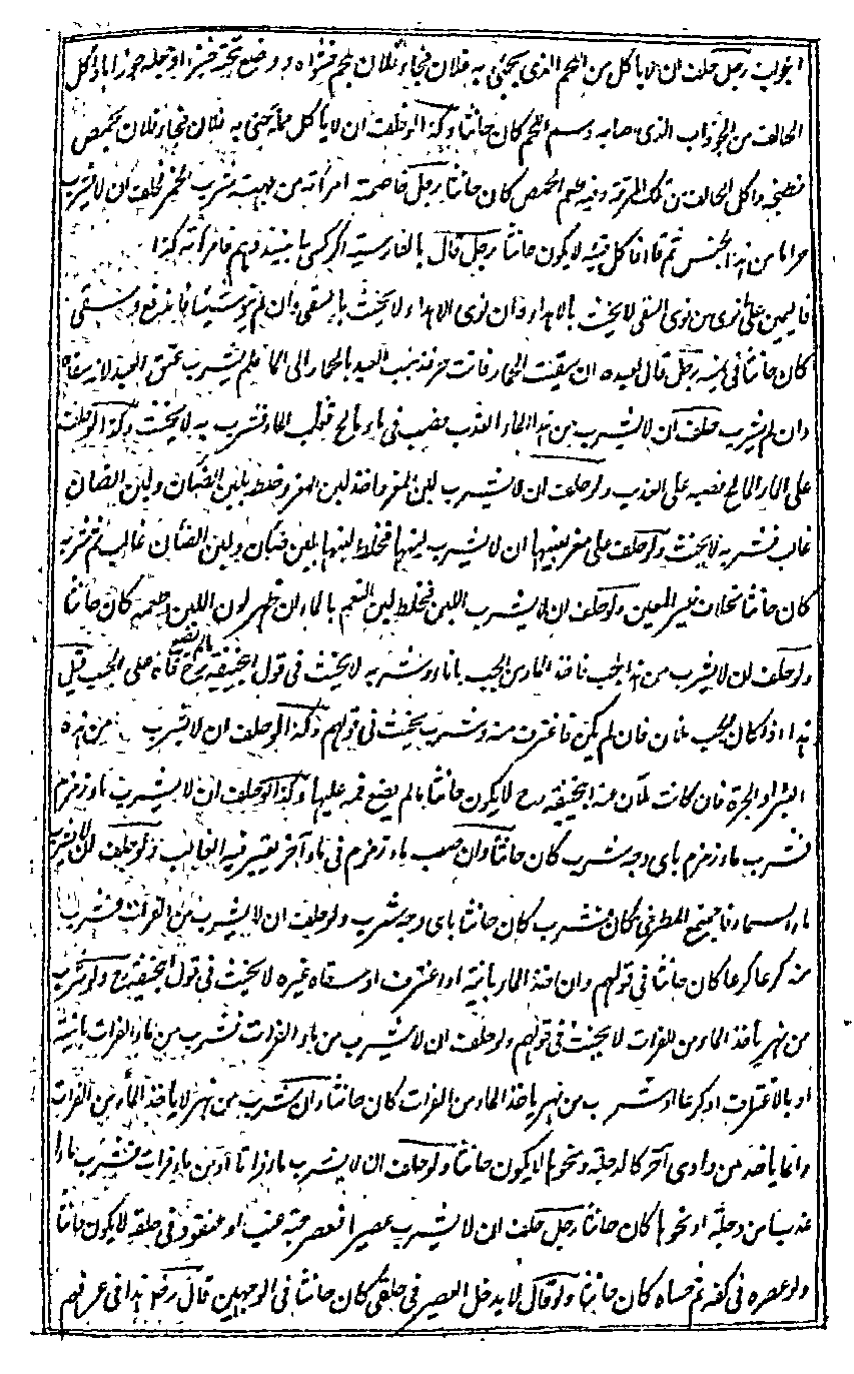 الجواب رجل حلف ان لا ياكل من اللحم الذى يجئ به فلان فجاء فلان بلحم فشواه ووضع تحته خبزا او جعله جوزابا فاكل
الحالف من الجوذاب الذى اصابه دسم اللحم كان حانثا وكذا لو حلف ان لا ياكل مما يجئ به فلان فجاء فلان بحمص
فطبخه واكل الحالف من تلك المرقة وفيه طعم الحمص كان حانثا رجل خاصمته امرأته من جهة شرب الخمر فحلف ان لا يشرب
حراما من هذا الجنس ثم فاكل قيئه لا يكون حانثا رجل قال بالفارسية اكر كسى را نبيذ دهم فامرأته كذا
فاليمين على ما نوى من نوى السقى لا يحنث بالاهداء وان نوى الاهداء لا يحنث بالسقى وان لم ينو شيئا فايدفع و سقى
كان حانثا فى يمينه رجل قال لعبده ان سقيت الحمار فانت حر فذهب العبد بالحمار الى الماء فلم يشرب عتق العبد لانه سقاه
وان لم يشرب حلف ان لا يشرب من هذا الماء العذب فصب فى ماء مالح فغلب الماء فشرب به لا يحنث وكذا لو حلف
على الماء المالح فصبه على العذب ولو حلف ان لا يشرب لبن المعز واخذ لبن المعز وخلط بلبن الضان ولبن الضان
غالب فشربه لا يحنث ولو حلف على معز بعينها ان لا يشرب لبنها فخلط لبنها بلبن ضان ولبن الضان غالب ثم شربه
كان حانثا بخلاف غير المعين ولو حلف ان لا يشرب اللبن فخلط لبن الغنم بالماء ان ظهر لون اللبن وطعمه كان حانثا
ولو حلف ان لا يشرب من هذا الحب فاخذ الماء من الحب باناء وشربه لا يحنث فى قول ابى حنيفة رح ما لم يضع فاه على الحب قيل
هذا اذا كان الحب ملان فان لم يكن فاغترف منه وشرب يحنث فى قولهم وكذا لو حلف ان لا يشرب من هذه
البئر او الجرة فان كانت ملان عند ابى حنيفة رح لا يكون حانثا ما لم يضع فمه عليها وكذا لو حلف ان لا يشرب ماء زمزم
فشرب ماء زمزم باى وجه شرب كان حانثا وان صب ماء زمزم فى ماء آخر يعتبر فيه الغالب ولو حلف ان لا يشرب
ماء السماء فاجتمع المطر فى مكان فشرب كان حانثا باى وجه شرب ولو حلف ان لا يشرب من الفرات فشرب
منه كرعا كرعا كان حانثا فى قولهم وان اخذ الماء بانية او اغترف او سقاه غيره لا يحنث فى قول ابى حنيفة رح ولو شرب
من نهر ياخذ الماء من الفرات لا يحنث فى قولهم ولو حلف ان لا يشرب من ماء الفرات فشرب من ماء الفرات بانية
او بالاغتراف او كرعا او شرب من نهر ياخذ الماء من الفرات كان حانثا وان شرب من نهر لا ياخذ الماء من الفرات
وانما ياخذ من وادى آخر كالدجلة ونحوها لا يكون حانثا ولو حلف ان لا يشرب ماء فراتا او من ماء فرات فشرب ماء
عذبا من دجلة او نحوها كان حانثا رجل حلف ان لا يشرب عصيرا فعصر حبة عنب او عنقود فى حلقه لا يكون حانثا
ولو عصره فى كفه ثم حساه كان حانثا ولو قال لا يدخل العصير فى حلقى كان حانثا فى الوجهين قال رض هذا فى عرفهم